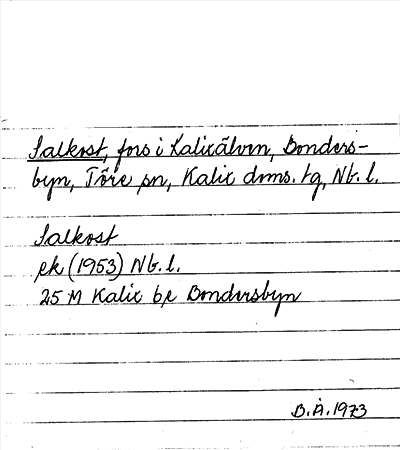 Salkost, fors i Kalixälven, Bonders-
byn, Töre sn, Kalix doms. tg, Nb. l.
Salkost
ek (1953) Nb. l.
25 M Kalix bl Bondersbyn
B.Å. 1973